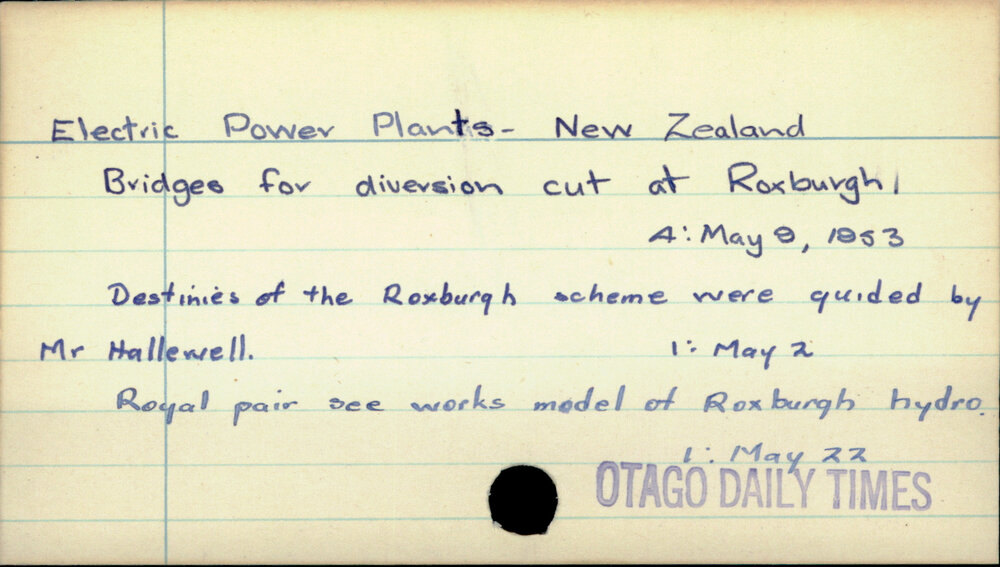 Electric Power Plants - New Zealand
Bridges for diversion cut at Roxburgh,
4: May 9, 1953
Destinies of the Roxburgh scheme were guided by
Mr Hallewell. 1: May 2
Royal pair see works model of Roxburgh hydro.
1: May 22
OTAGO DAILY TIMES